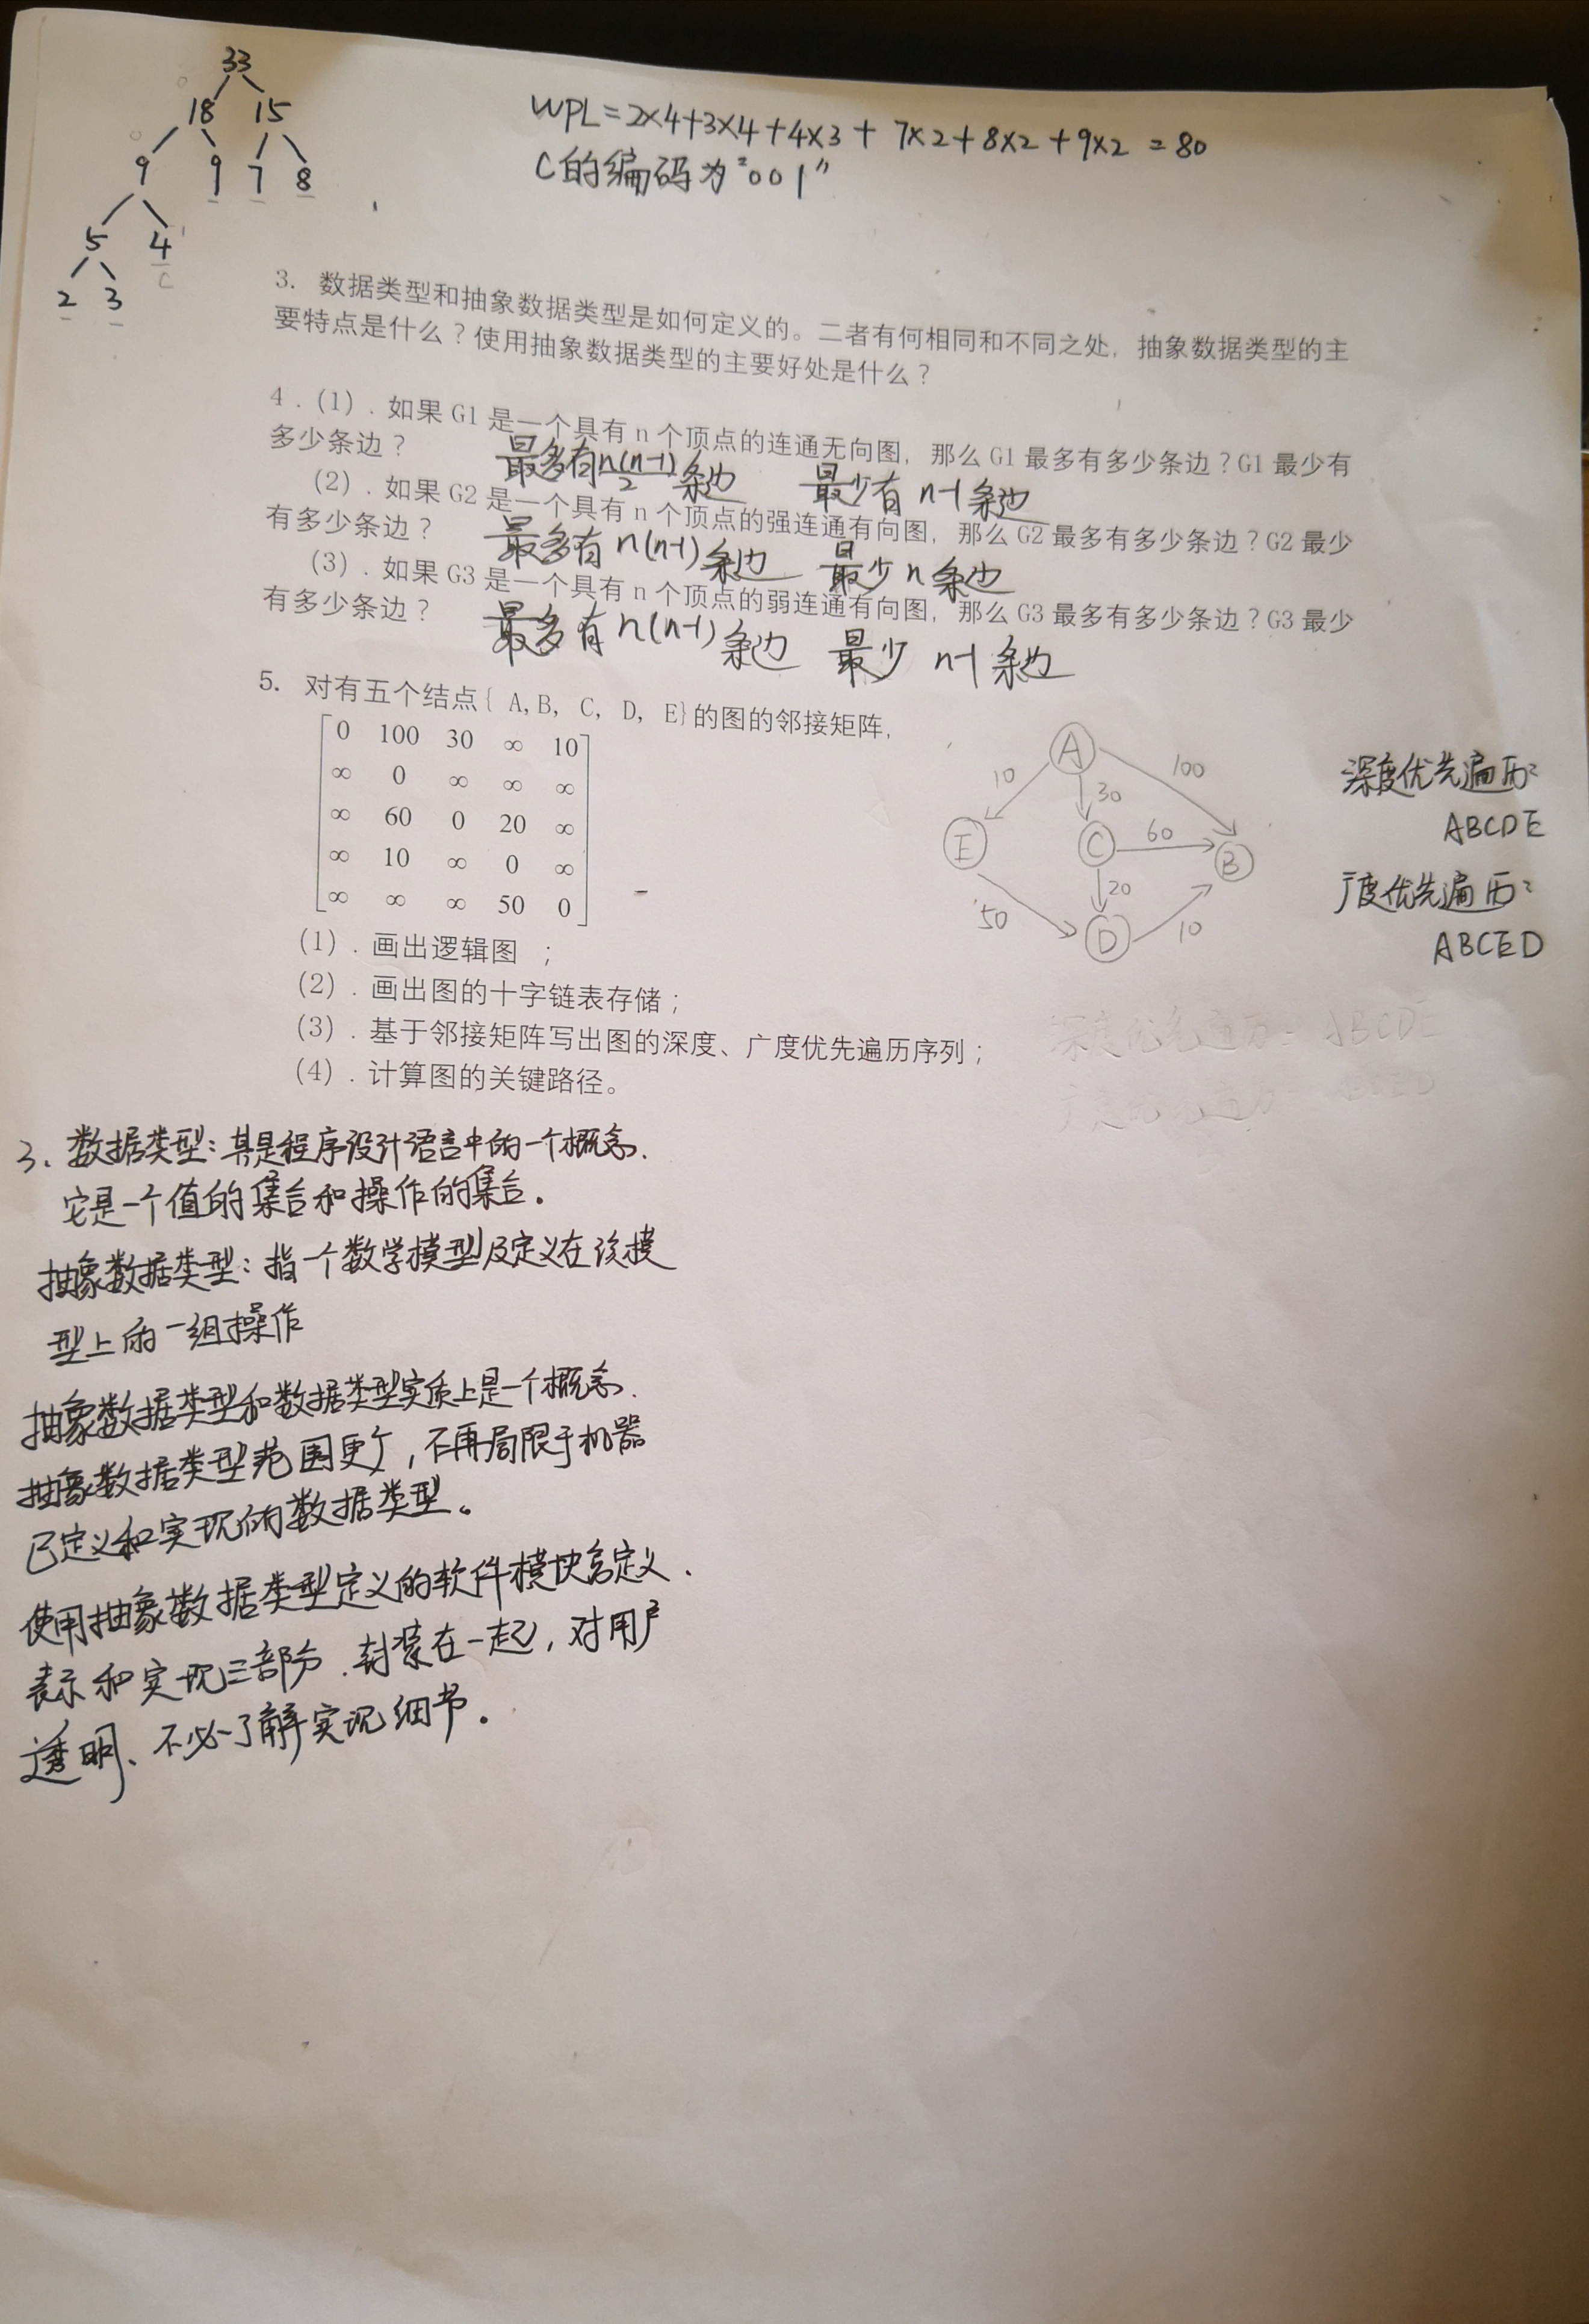 33
18 15
9 9 7 8
5 4
c
2 3
WPL=2×4+3×4+4×3+7×2+8×2+9×2=80
C的编码为"001"
3. 数据类型和抽象数据类型是如何定义的。二者有何相同和不同之处，抽象数据类型的主
要特点是什么？使用抽象数据类型的主要好处是什么？
4.(1).如果G1是一个具有n个顶点的连通无向图，那么G1最多有多少条边？G1最少有
多少条边？ 最多有n(n-1)/2条边 最少有n-1条边
(2).如果G2是一个具有n个顶点的强连通有向图，那么G2最多有多少条边？G2最少
有多少条边？ 最多有n(n-1)条边 最少n条边
(3).如果G3是一个具有n个顶点的弱连通有向图，那么G3最多有多少条边？G3最少
有多少条边？ 最多有n(n-1)条边 最少n-1条边
5. 对有五个结点{ A,B, C, D, E}的图的邻接矩阵，
0 100 30 ∞ 10
∞ 0 ∞ ∞ ∞
∞ 60 0 20 ∞
∞ 10 ∞ 0 ∞
∞ ∞ ∞ 50 0
A
10 30 100
E C 60 B
50 20 10
D
深度优先遍历:
ABCDE
广度优先遍历:
ABCED
(1).画出逻辑图 ；
(2).画出图的十字链表存储；
(3).基于邻接矩阵写出图的深度、广度优先遍历序列；
(4).计算图的关键路径。
深度优先遍历: ABCDE
广度优先遍历 ABCED
3、数据类型：其是程序设计语言中的一个概念.
它是一个值的集合和操作的集合.
抽象数据类型：指一个数学模型及定义在该模
型上的一组操作
抽象数据类型和数据类型实质上是一个概念.
抽象数据类型范围更广，不再局限于机器
已定义和实现的数据类型。
使用抽象数据类型定义的软件模块含定义、
表示和实现三部分.封装在一起，对用户
透明、不必了解实现细节.